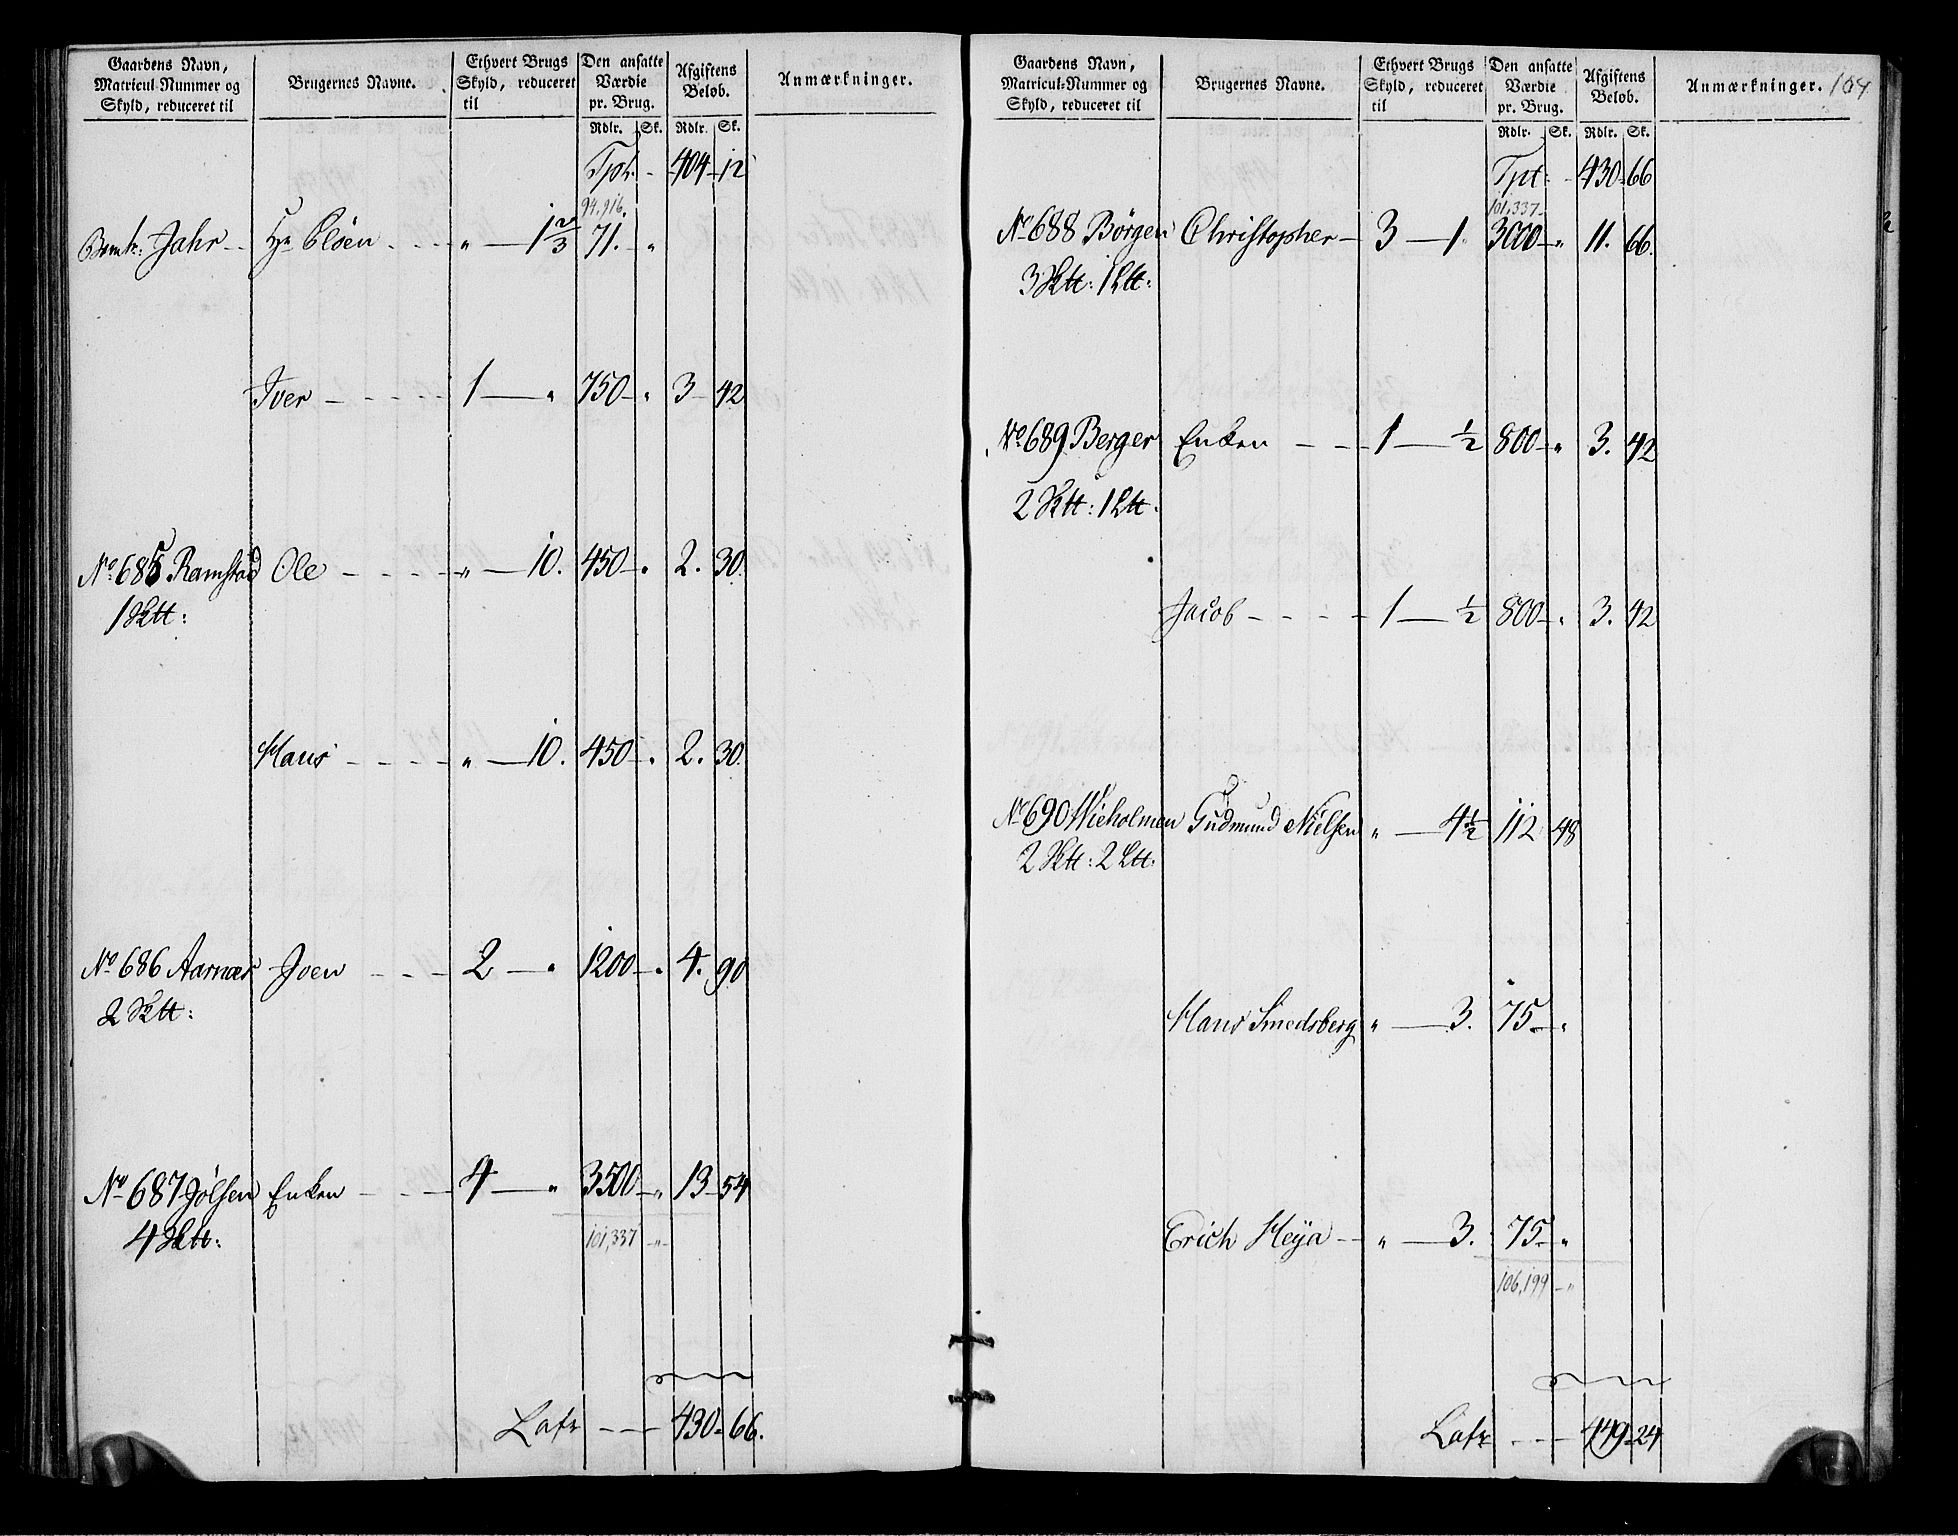 Gaardens Navn, Matricul-Nummer og Skyld, reduceret til | Brugernes Navne. | Ethvert Brugs Skyld, reduceret til | Den ansatte Værdie pr. Brug. | Afgiftens Beløb. | Anmærkninger.
Rdlr. Sk. Rdlr. Sk.
Tpt: - 404 - 12
94,916.
Jahr - - " - 1 2/3 71. - "
Iver - - - - 1 - " 750 - " 3 - 42
No 685 Ramstad Ole - - - - " - 10. 450 - " 2. 30.
1 Sktt:
Hans - - - - " - 10. 450 - " 2. 30.
No 686 Aarnæs Joen - - - 2 - " 1200 - " 4. 90
2 Sktt:
No 687 Jølsen Enken - - - 4 - " 3500 - " 13 - 54
4 Sktt:
101,337 - "
Latr - - - 430 - 66.
Gaardens Navn, Matricul-Nummer og Skyld, reduceret til | Brugernes Navne. | Ethvert Brugs Skyld, reduceret til | Den ansatte Værdie pr. Brug. | Afgiftens Beløb. | Anmærkninger. 104
Rdlr. Sk. Rdlr. Sk.
Tpt: - 430 - 66
101,337 -
No 688 Børgen Christopher - 3 - 1. 3000 - " 11. 66.
3 Sktt: 1 Ltt:
No 689 Berger Enken - - - 1 - 1/2 800 - " 3. 42
2 Sktt: 1 Ltt.
Jacob - - - - 1 - 1/2 800 - " 3. 42
No 690 Wieholmen Gudmund Nielsen " - 4 1/2 112 48
2 Sktt: 2 Ltt.
Hans Smedsberg " - 3. 75 - "
Erich Heÿa - " - 3. 75 - "
106,199 - "
Latr - - - 449 - 24